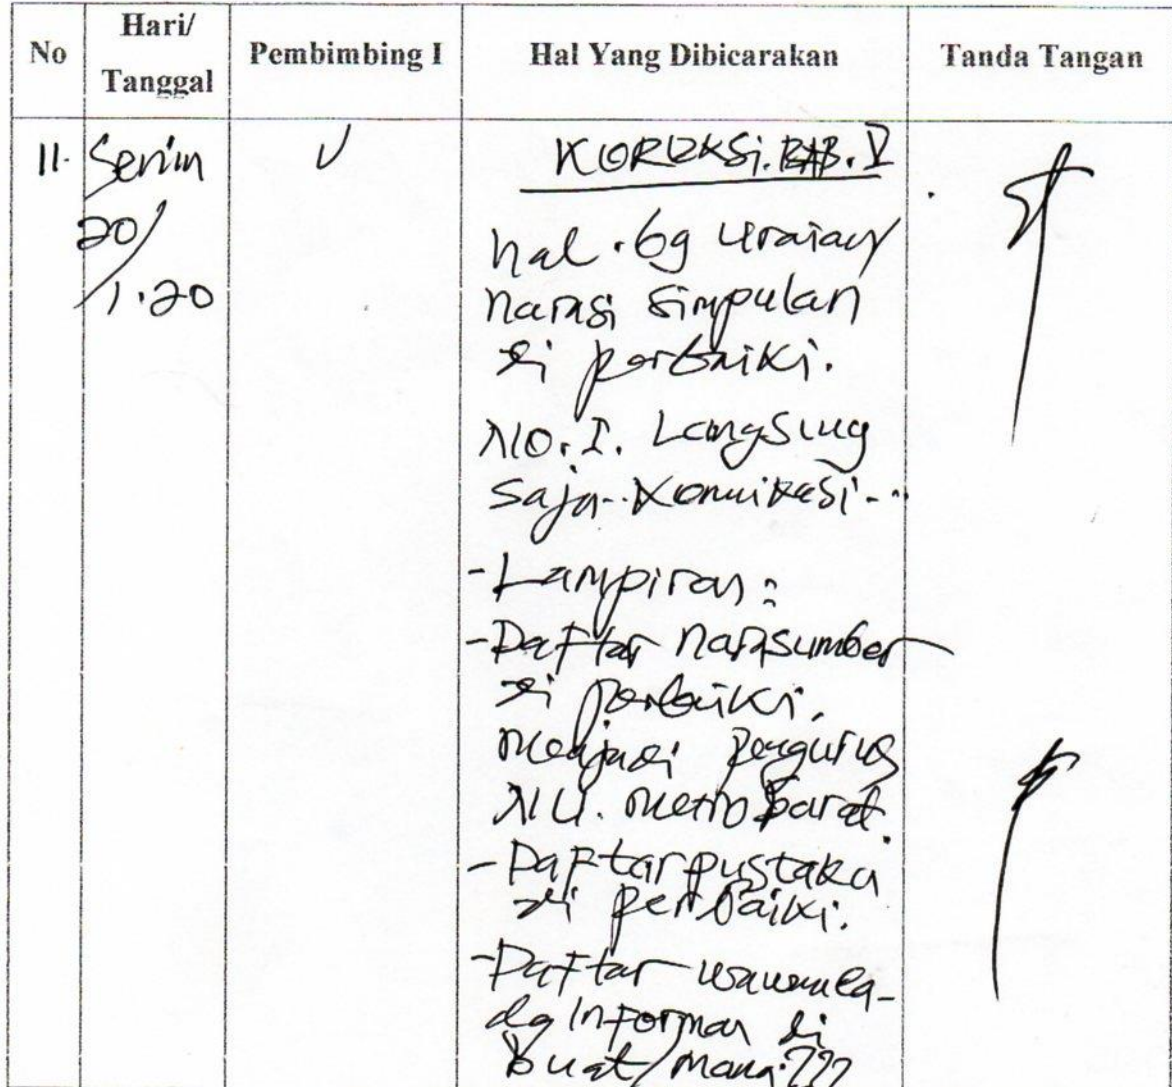 No
Hari/
Tanggal
Pembimbing I
Hal Yang Dibicarakan
Tanda Tangan
11.
Senin
20/
1.20
KOREKSi. BAB. V
hal. 69 uraian/
narasi simpulan
di perbaiki.
NO. I. Langsung
saja.. Komunikasi...
- Lampiran:
- Daftar narasumber
di perbaiki.
menjadi pengurus
NU. Metro Barat.
- Daftar pustaka
di perbaiki.
- Daftar wawanca-
dg informan di
buat/mana???